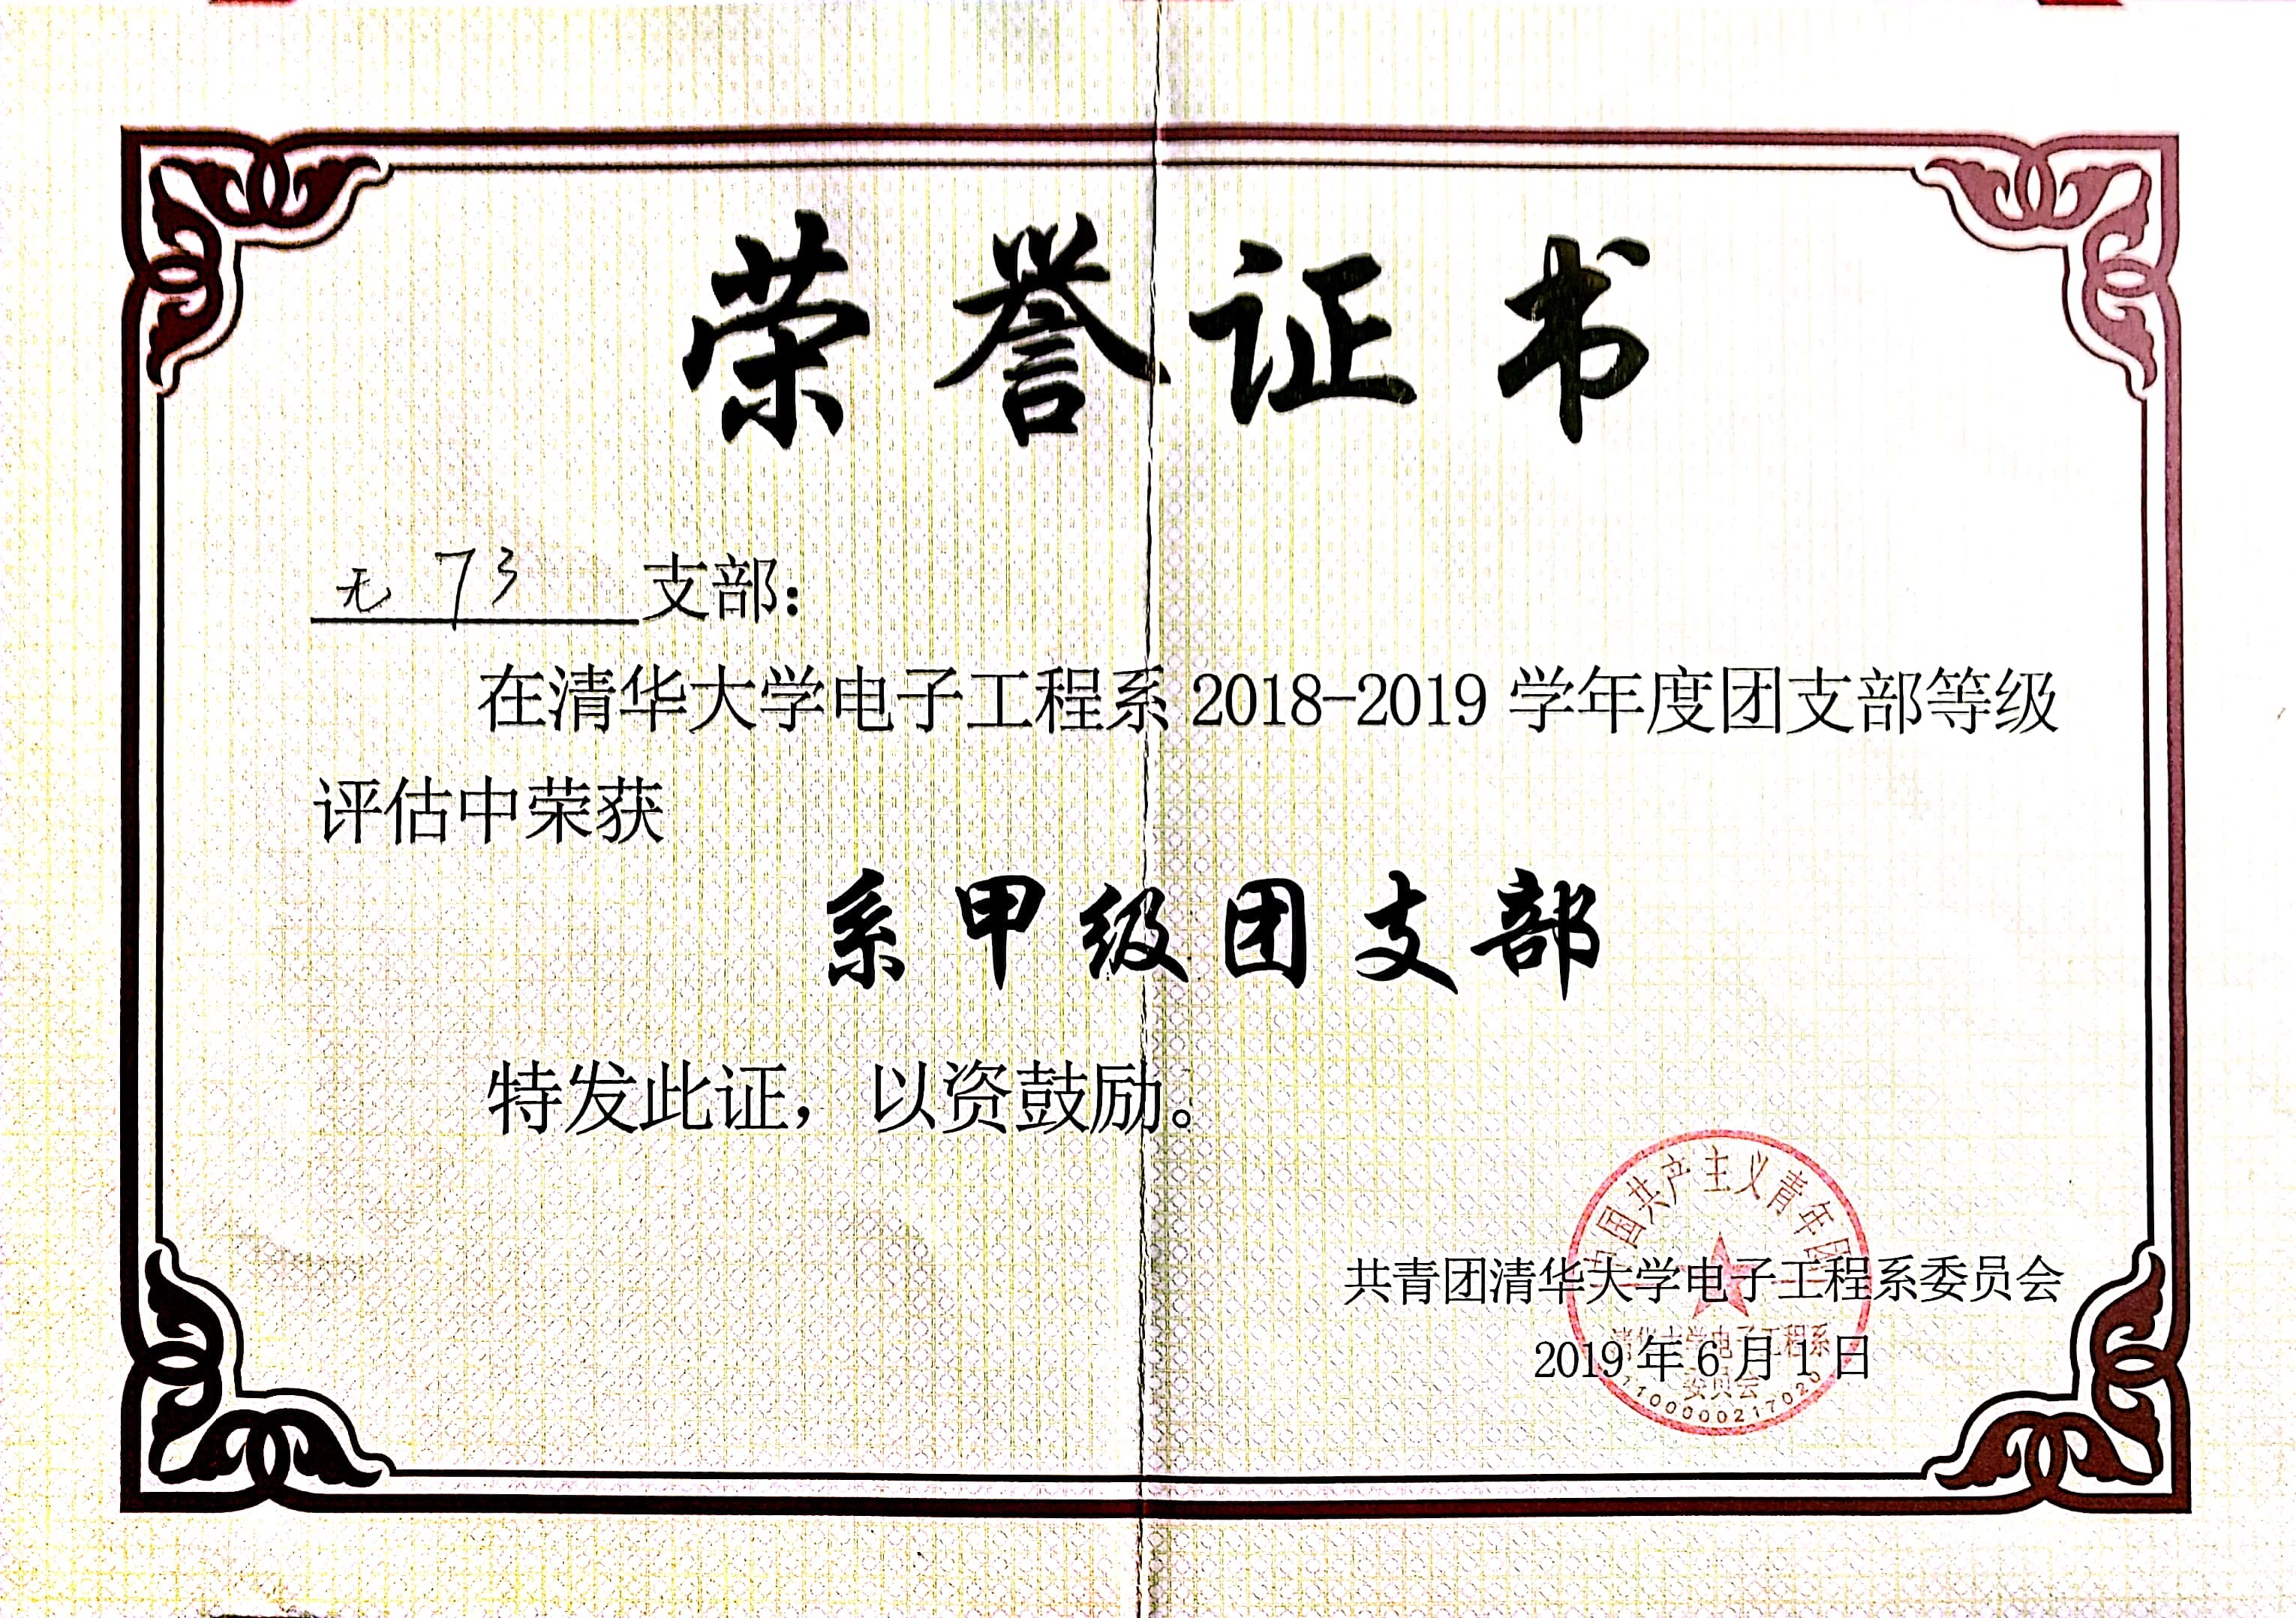 荣誉证书
无73支部：
在清华大学电子工程系2018-2019学年度团支部等级
评估中荣获
系甲级团支部
特发此证，以资鼓励。
共青团清华大学电子工程系委员会
2019年6月1日
国共产主义青年团